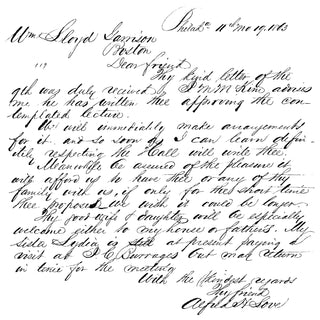 Philada 11th Mo 19. 1863
Wm Lloyd Garrison
Boston
Dear friend
Thy kind letter of the
9th was duly received & J. M. McKim advises
me he has written thee approving the con-
templated lecture.
We will immediately make arrangements
for it. and so soon as I can learn defini-
tely respecting the Hall will write thee.
Meanwhile be assured of the pleasure it
will afford us to have thee or any of thy
family with us, if only for the short time
thee proposes we wish it could be longer.
Thy good wife & daughter will be especially
welcome either to my house or father's. My
sister Lydia is still at present paying a
visit at Burrages but may return
in time for the meeting
With the kindest regards
Thy friend
Alfred H Love